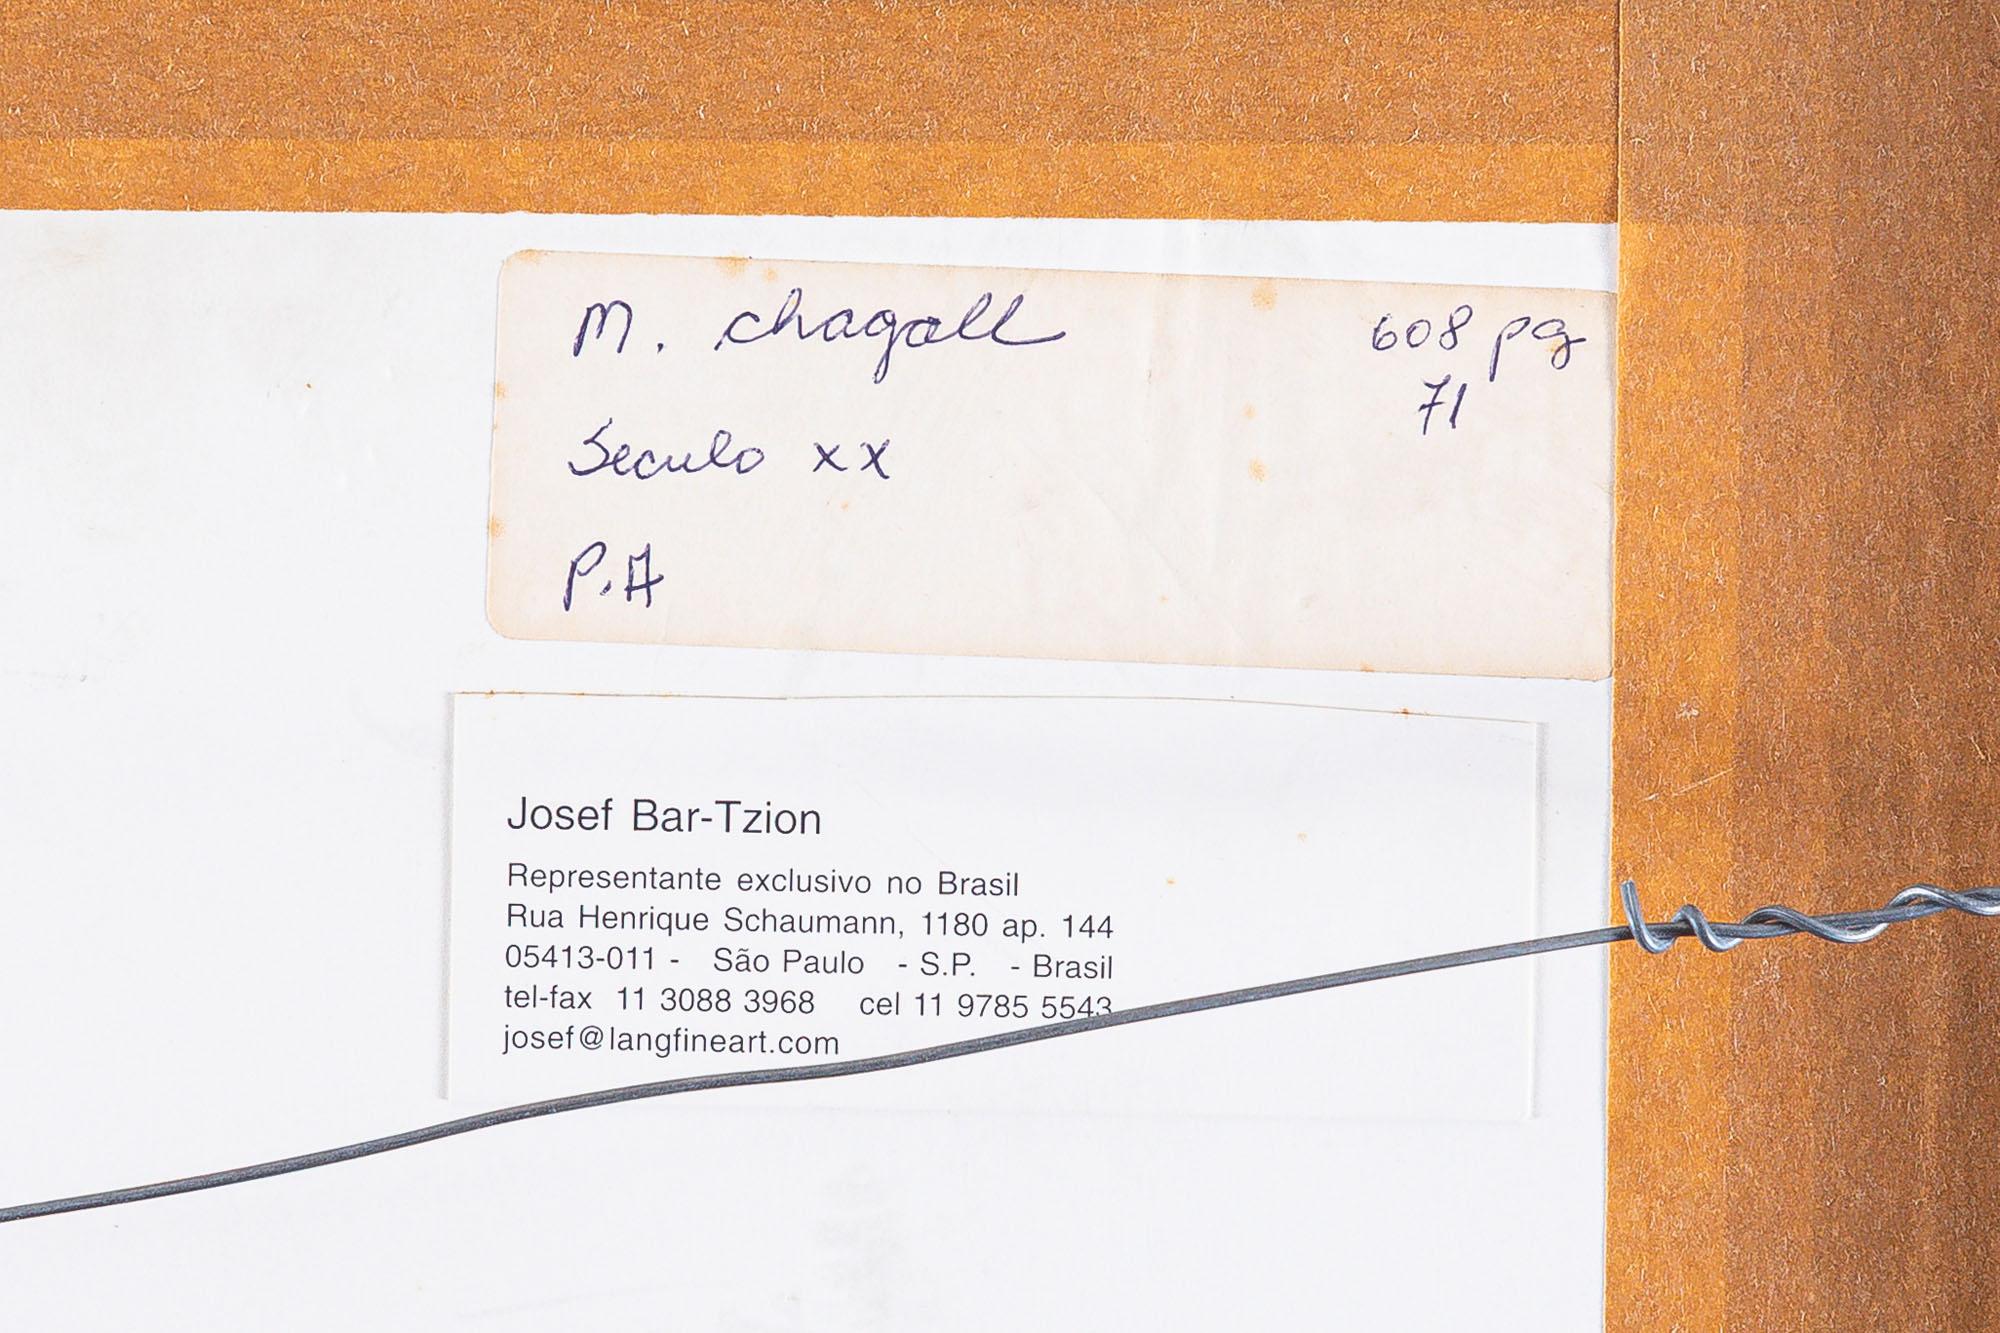 M. Chagall 608 pg
71
Seculo XX
P.A
Josef Bar-Tzion
Representante exclusivo no Brasil
Rua Henrique Schaumann, 1180 ap. 144
05413-011 - São Paulo - S.P. - Brasil
tel-fax 11 3088 3968 cel 11 9785 5543
josef@langfineart.com